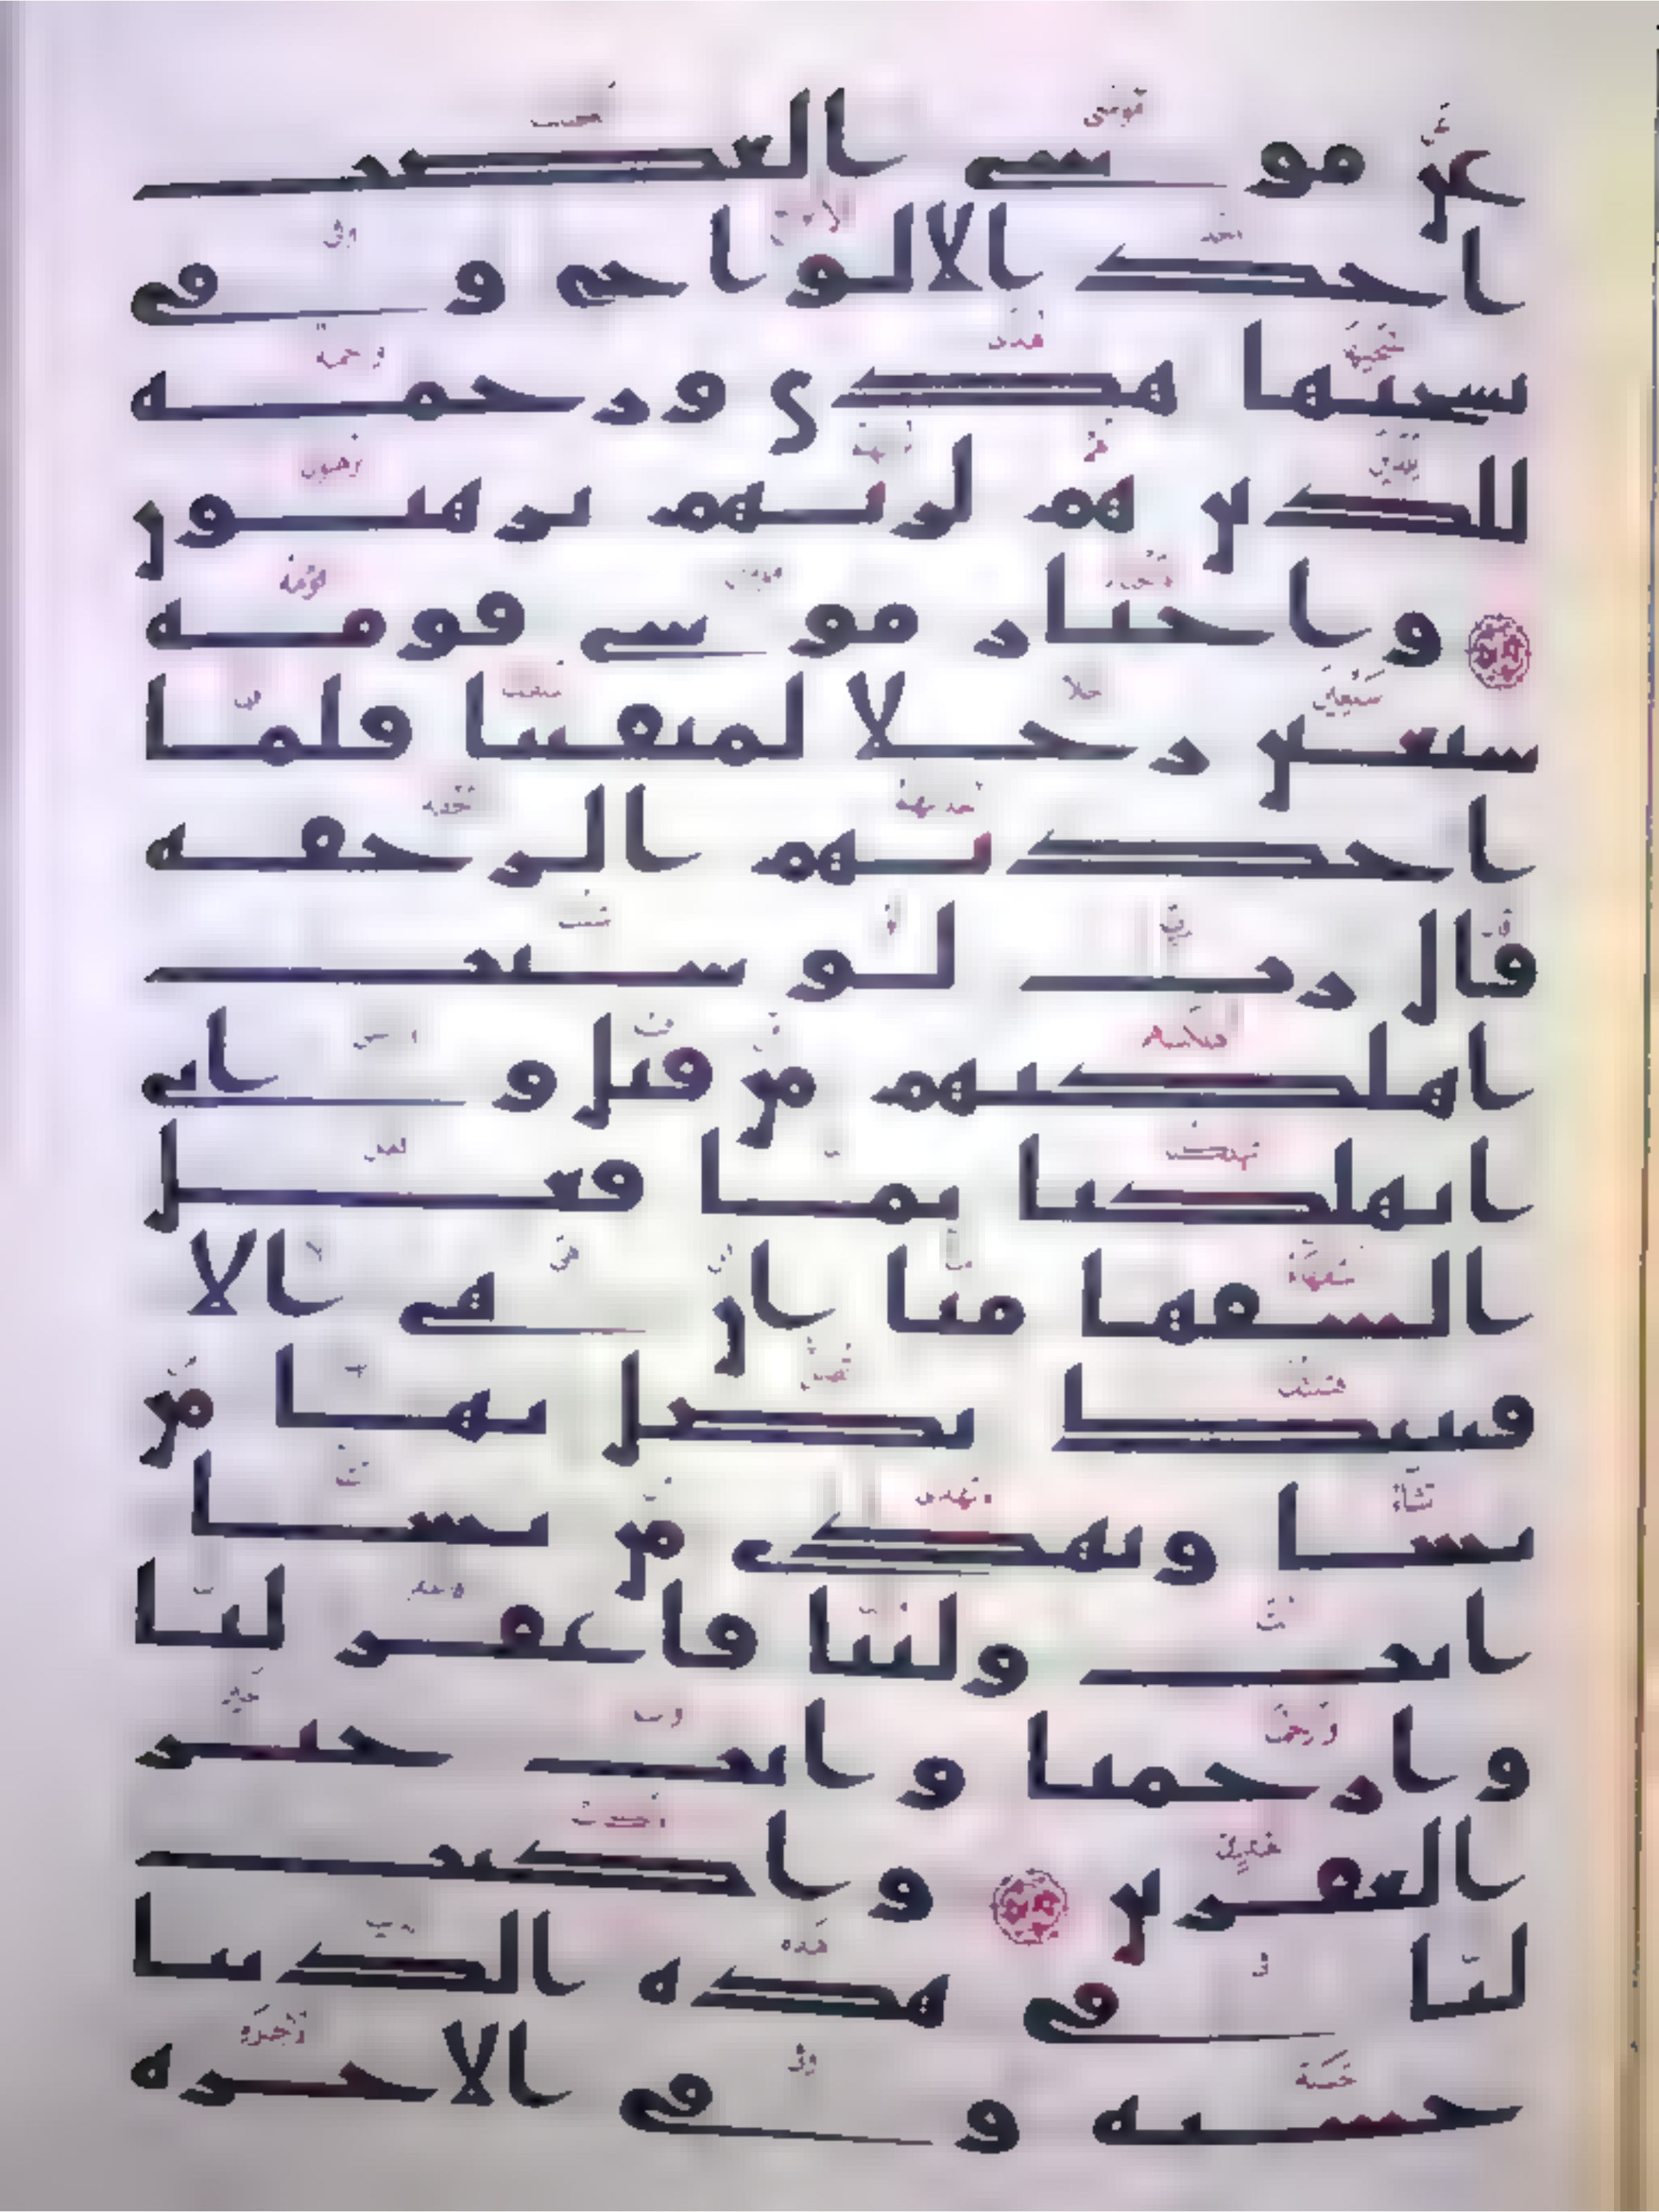 عن موسى الغضب
اخذ الالواح وفي
نسختها هدى ورحمة
للذين هم لربهم يرهبون
واختار موسى قومه
سبعين رجلا لميقتنا فلما
اخذتهم الرجفة
قال رب لو شئت
اهلكتهم من قبل وايى
اتهلكنا بما فعل
السفها منا ان هي الا
فتنتك تضل بها من
تشا وتهدي من تشا
انت ولينا فاغفر لنا
وارحمنا وانت خير
الغفرين واكتب
لنا في هذه الدنيا
حسنة وفي الاخرة